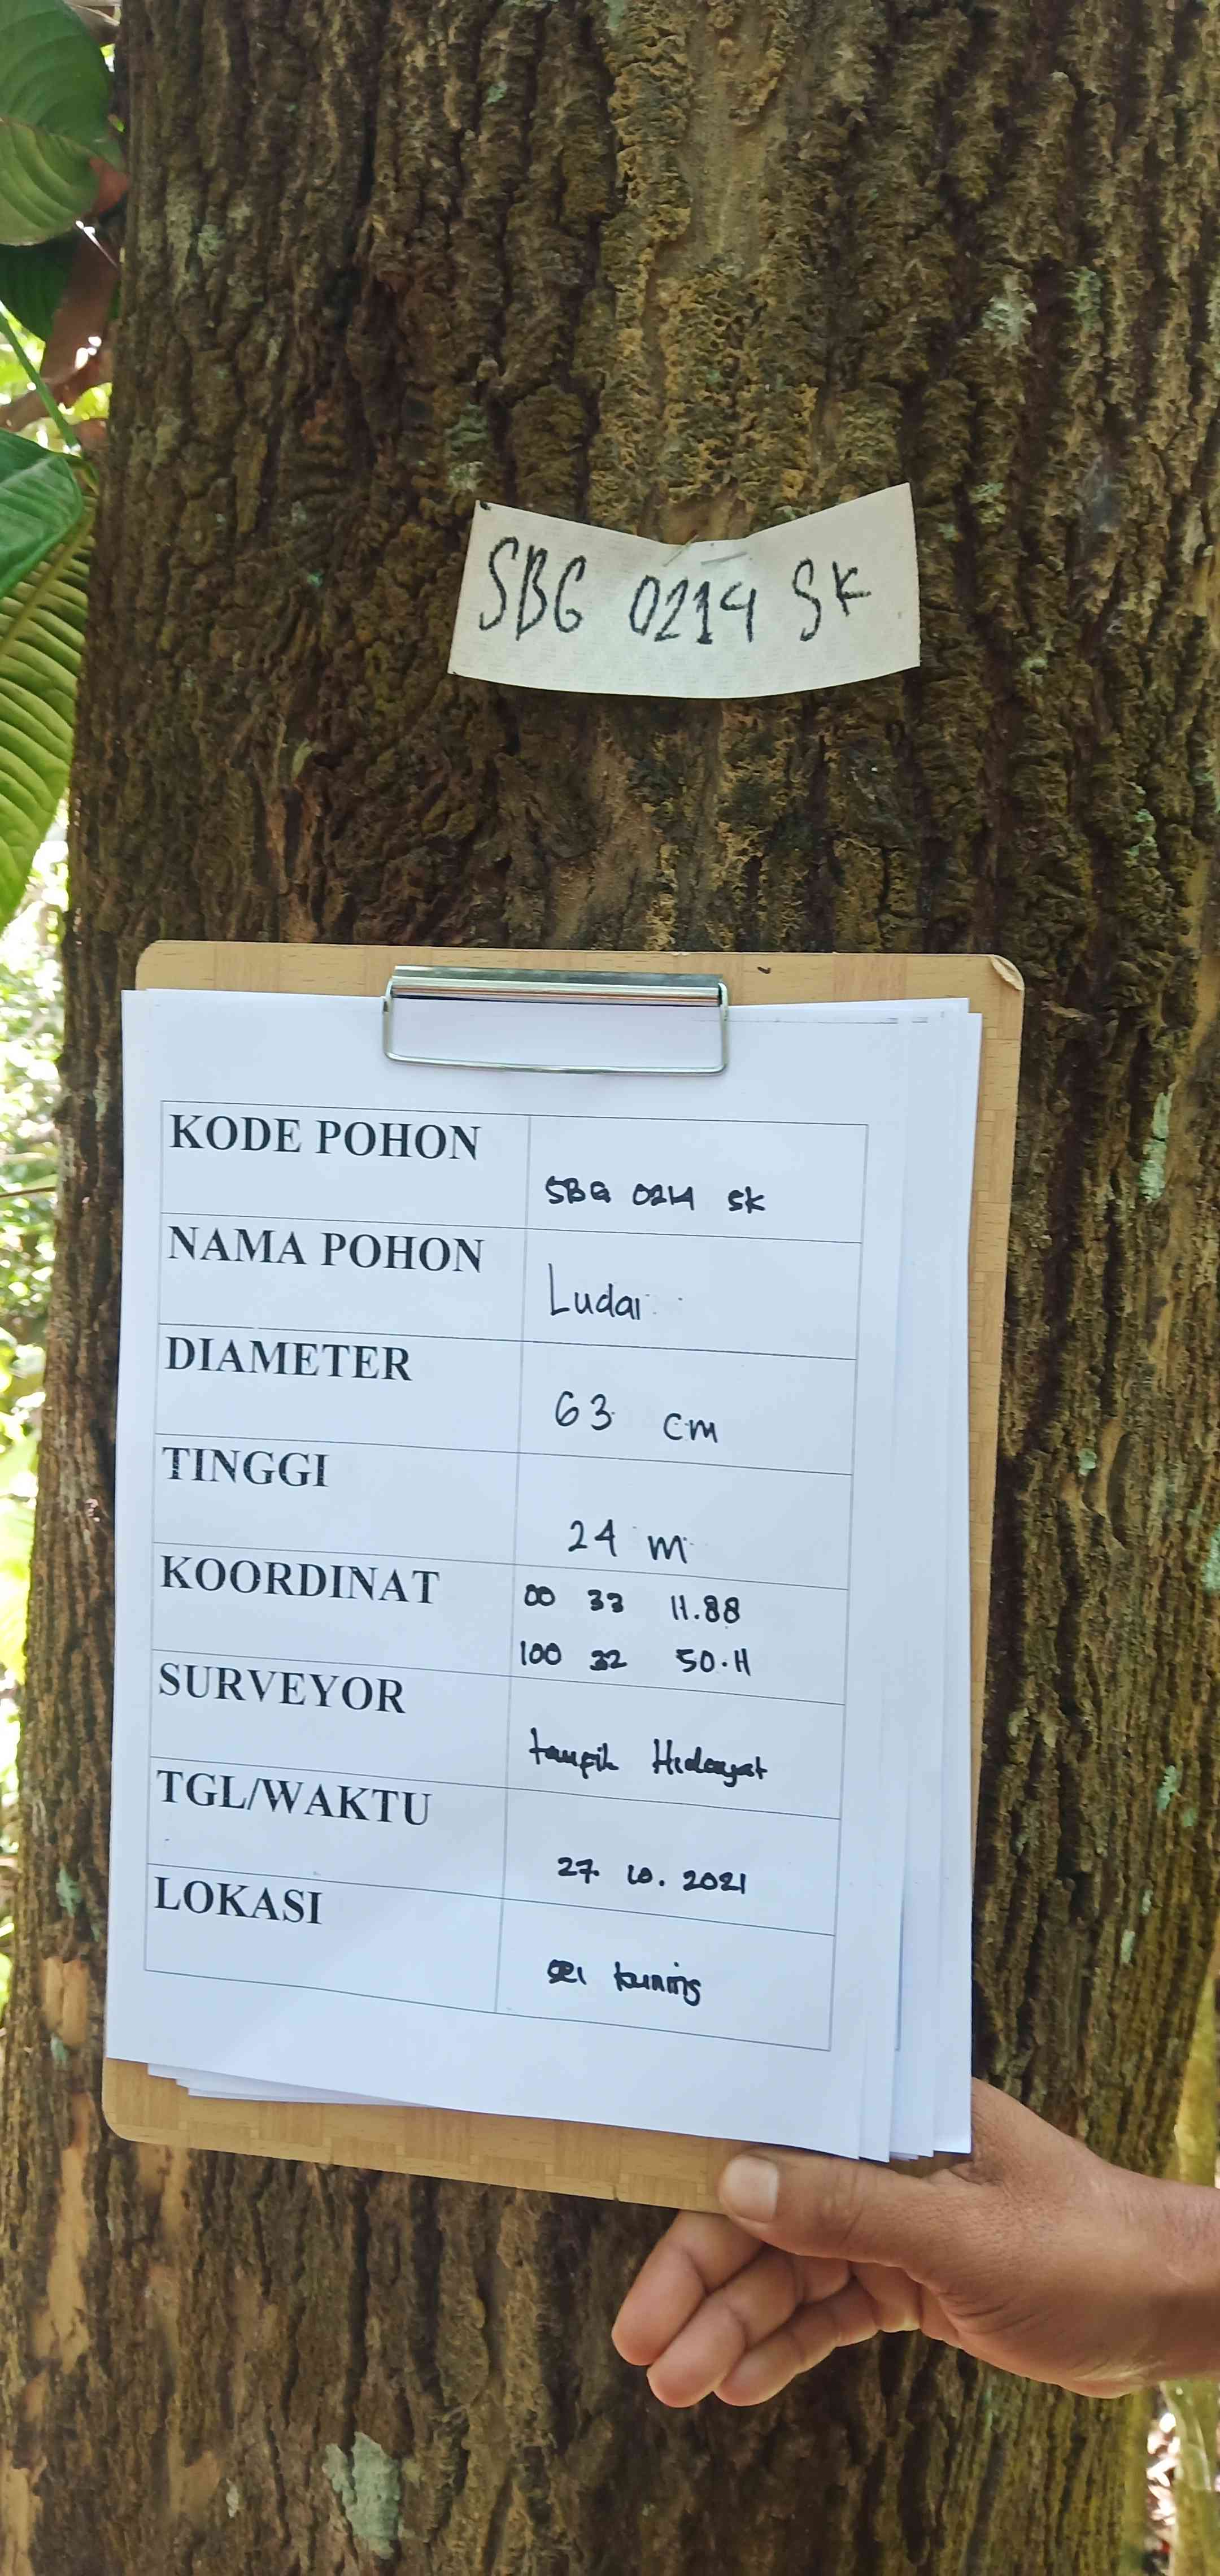 SBG 0214 SK
KODE POHON
SBG 0214 SK
NAMA POHON
Ludai
DIAMETER
63 cm
TINGGI
24 m
KOORDINAT
00 33 11.88
100 32 50.11
SURVEYOR
taupik Hidayat
TGL/WAKTU
27. 10. 2021
LOKASI
sei kuning